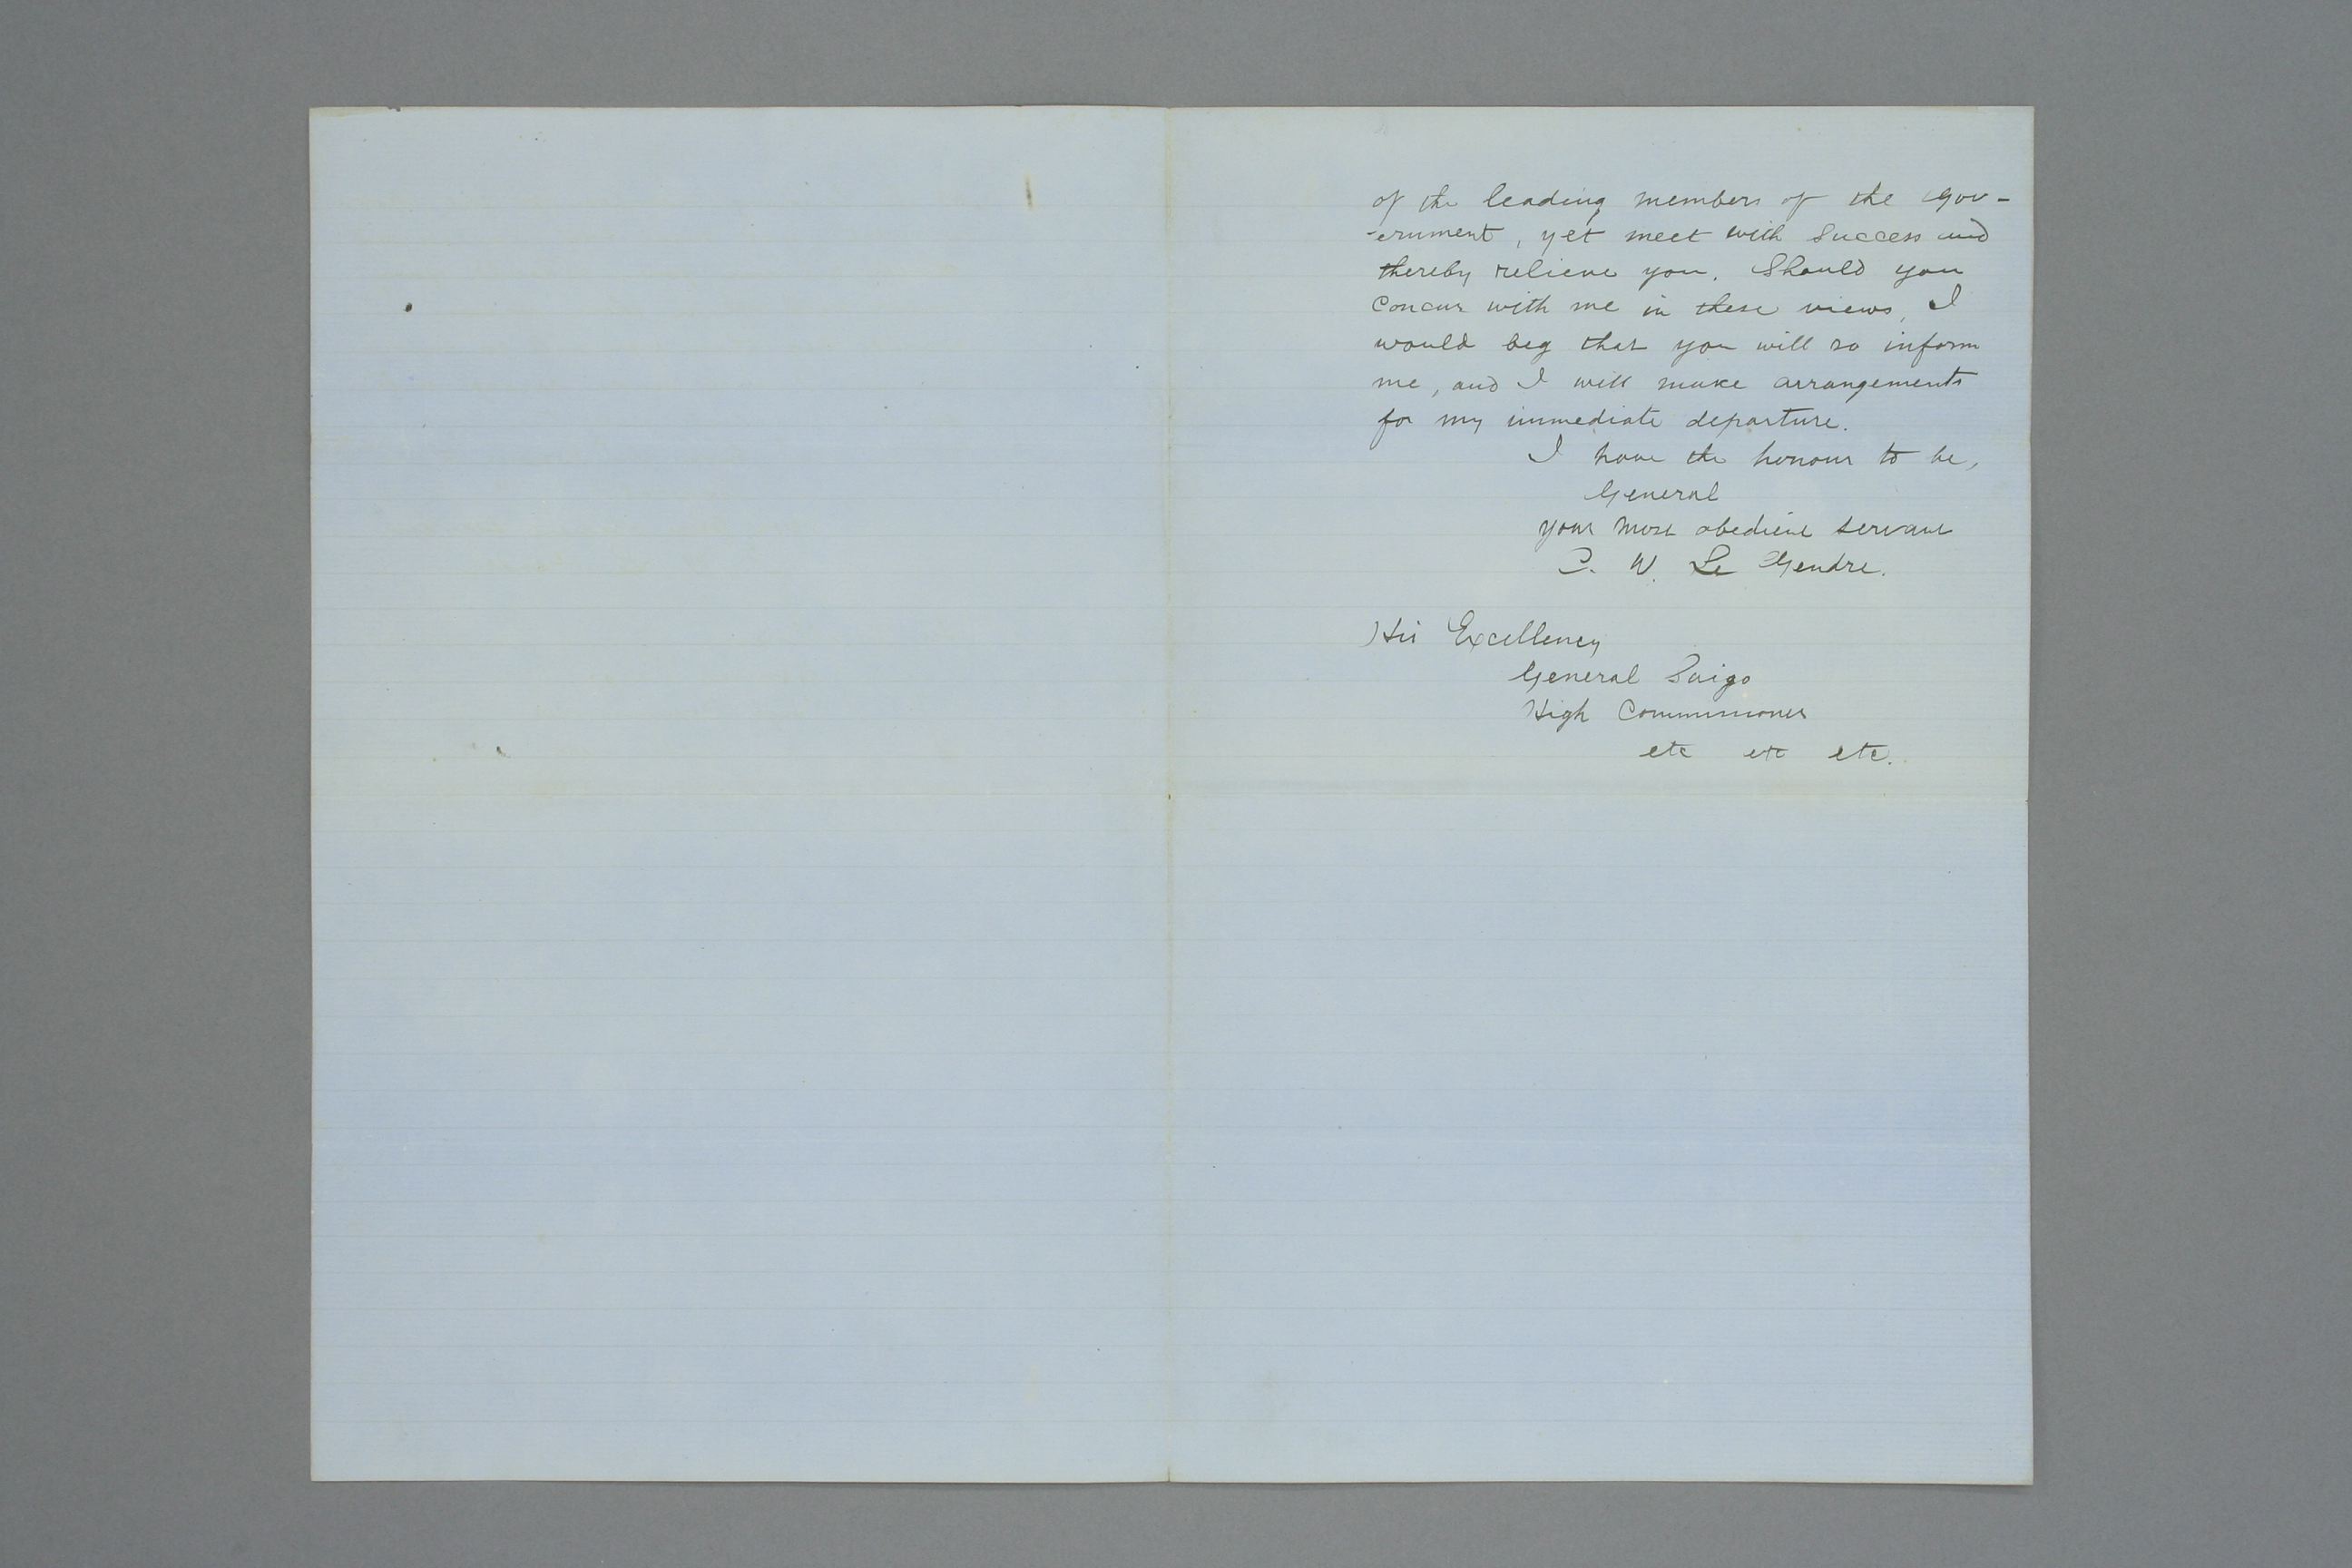 of the leading members of the Gov-
-ernment, yet meet with success and
thereby relieve you. Should you
concur with me in these views, I
would beg that you will so inform
me, and I will make arrangements
for my immediate departure.
I have the honour to be,
General
your most obedient servant
C. W. Le Gendre.
His Excellency
General Saigo
High Commissioner
etc etc etc.